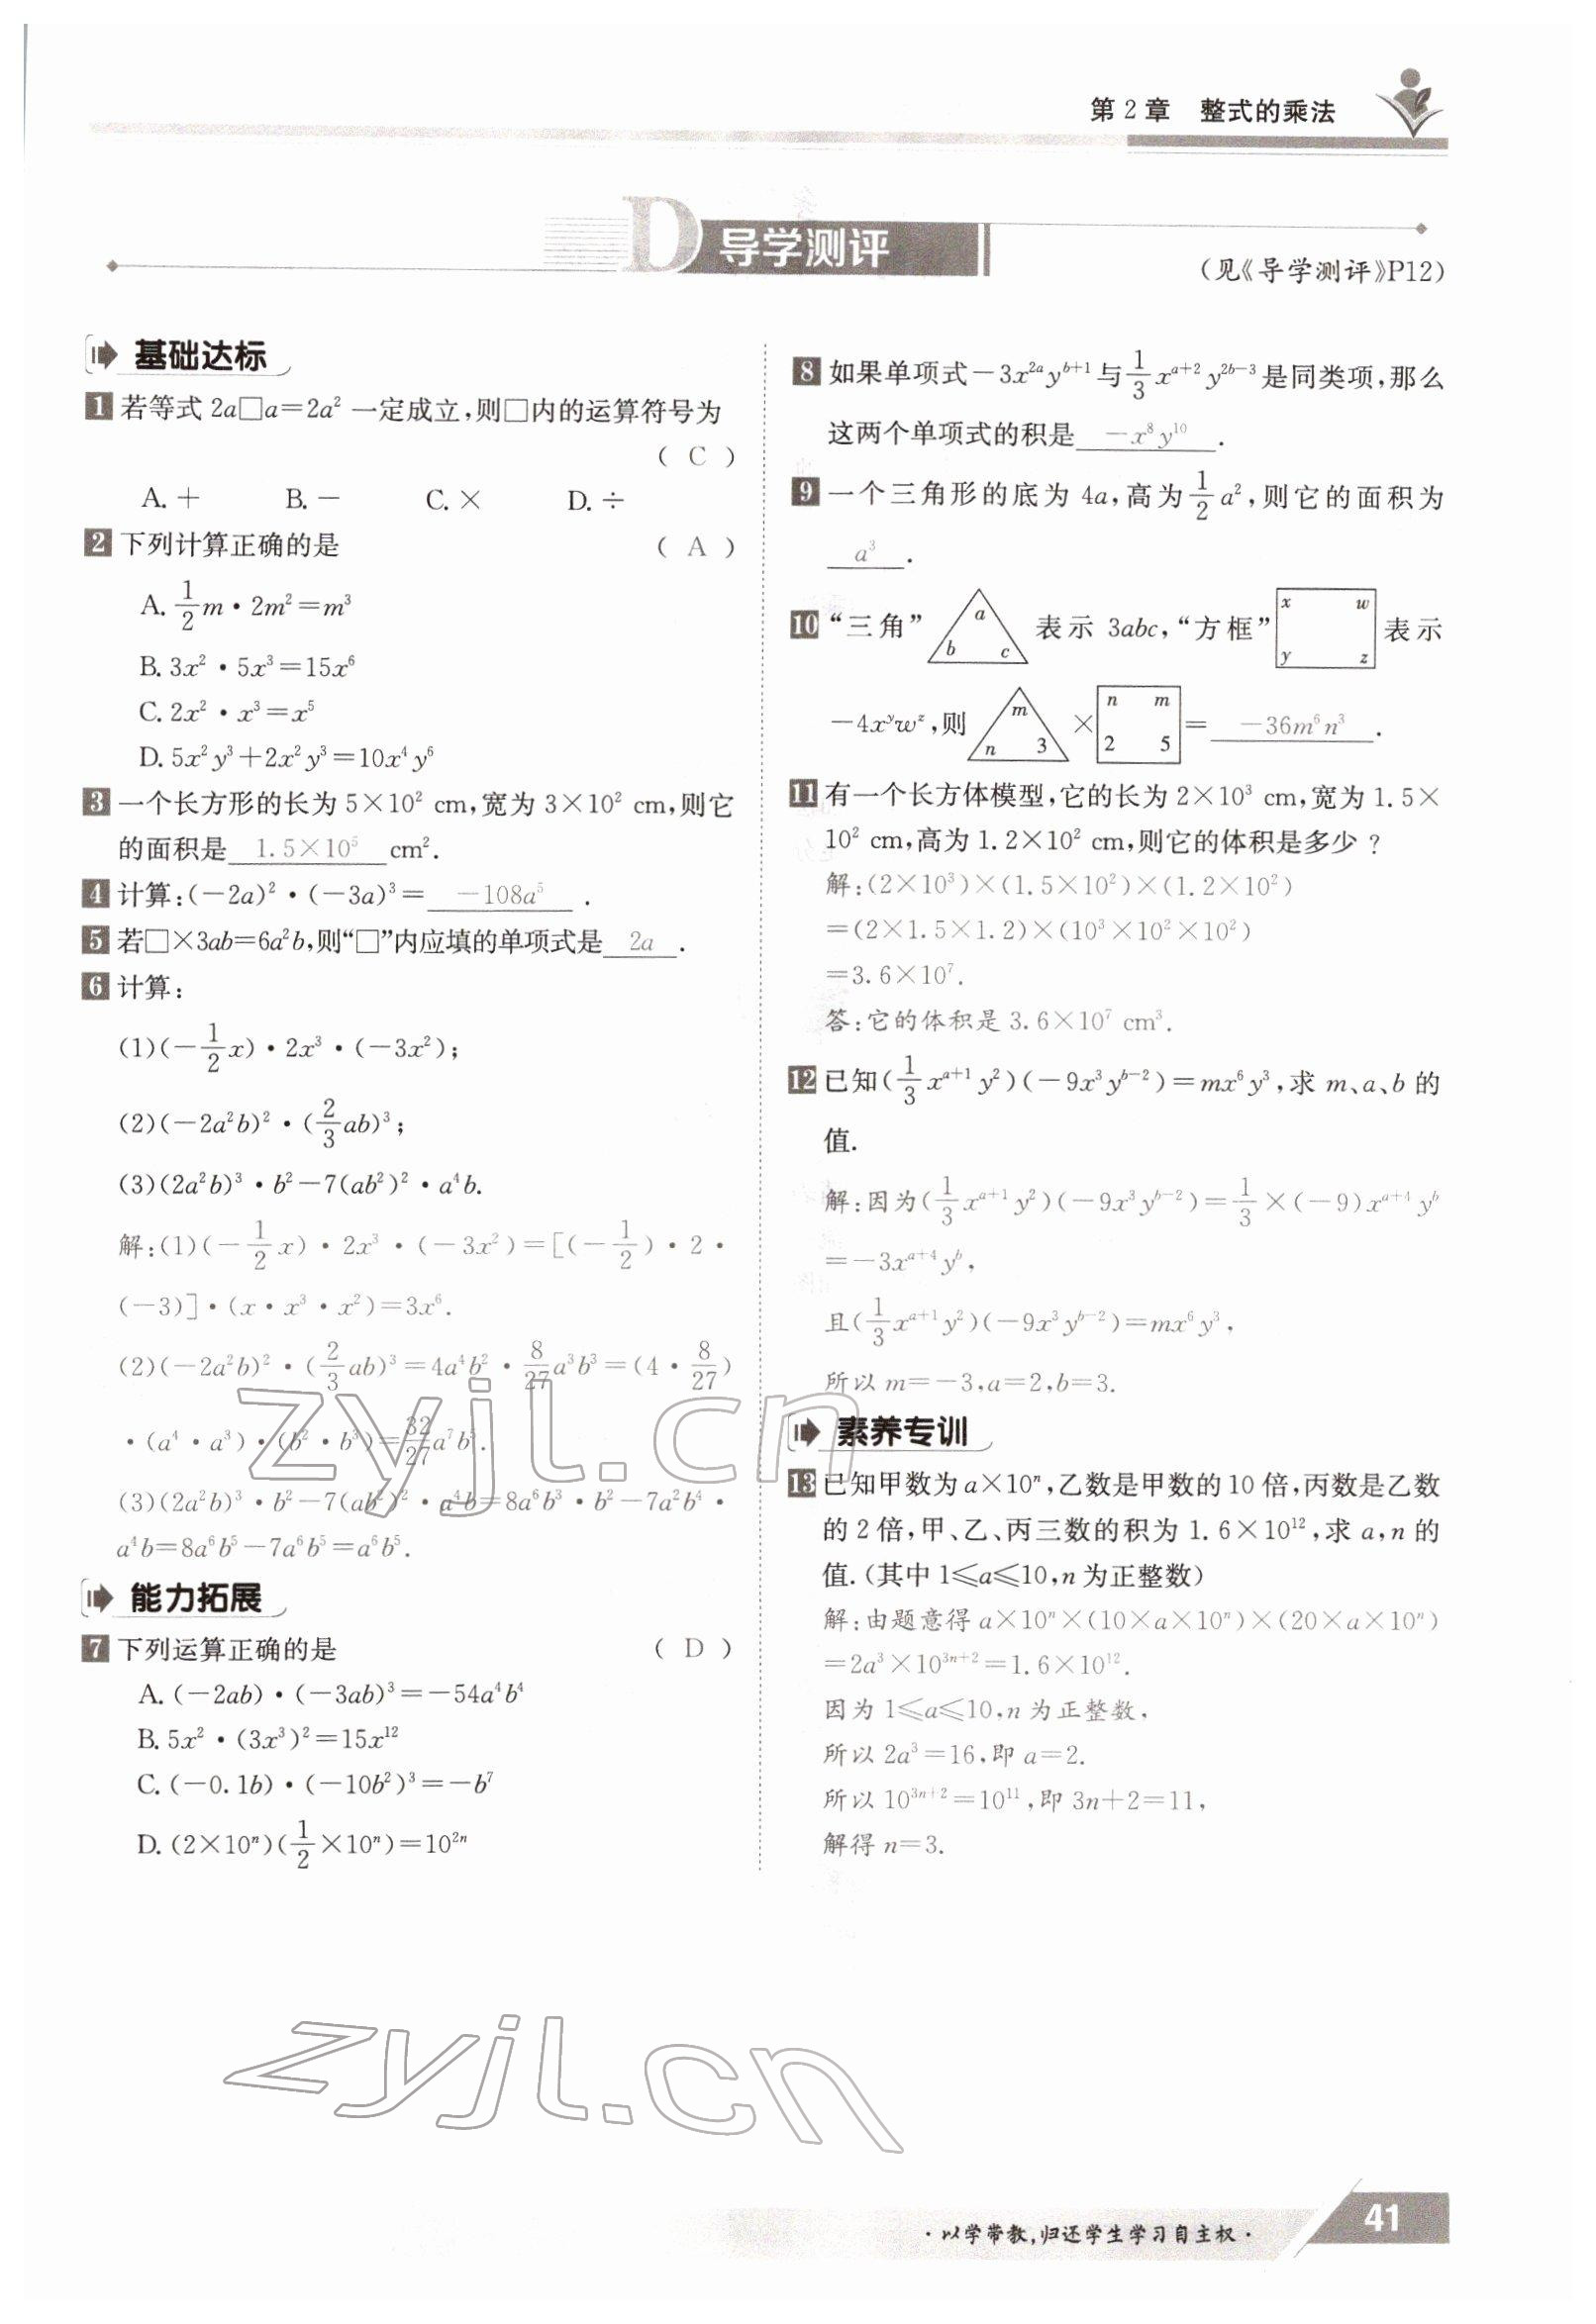 第2章 整式的乘法
D 导学测评
(见《导学测评》P12)
基础达标
1 若等式 2a□a=2a² 一定成立,则□内的运算符号为
( C )
A. + B. − C. × D. ÷
2 下列计算正确的是 ( A )
A. 1/2 m·2m²=m³
B. 3x²·5x³=15x⁶
C. 2x²·x³=x⁵
D. 5x²y³+2x²y³=10x⁴y⁶
3 一个长方形的长为 5×10² cm,宽为 3×10² cm,则它
的面积是 1.5×10⁵ cm².
4 计算:(−2a)²·(−3a)³= −108a⁵ .
5 若□×3ab=6a²b,则“□”内应填的单项式是 2a .
6 计算:
(1)(−1/2 x)·2x³·(−3x²);
(2)(−2a²b)²·(2/3 ab)³;
(3)(2a²b)³·b²−7(ab²)²·a⁴b.
解:(1)(−1/2 x)·2x³·(−3x²)=[(−1/2)·2·
(−3)]·(x·x³·x²)=3x⁶.
(2)(−2a²b)²·(2/3 ab)³=4a⁴b²·8/27 a³b³=(4·8/27)
·(a⁴·a³)·(b²·b³)=32/27 a⁷b⁵.
(3)(2a²b)³·b²−7(ab²)²·a⁴b=8a⁶b³·b²−7a²b⁴·
a⁴b=8a⁶b⁵−7a⁶b⁵=a⁶b⁵.
能力拓展
7 下列运算正确的是 ( D )
A. (−2ab)·(−3ab)³=−54a⁴b⁴
B. 5x²·(3x³)²=15x¹²
C. (−0.1b)·(−10b²)³=−b⁷
D. (2×10ⁿ)(1/2×10ⁿ)=10²ⁿ
8 如果单项式−3x²ᵃyᵇ⁺¹与1/3 xᵃ⁺²y²ᵇ⁻³是同类项,那么
这两个单项式的积是 −x⁸y¹⁰ .
9 一个三角形的底为 4a,高为1/2 a²,则它的面积为
a³ .
10 “三角” a b c 表示 3abc,“方框” x w y z 表示
−4xʸwᶻ,则 m n 3 × n m 2 5 = −36m⁶n³ .
11 有一个长方体模型,它的长为 2×10³ cm,宽为 1.5×
10² cm,高为 1.2×10² cm,则它的体积是多少?
解:(2×10³)×(1.5×10²)×(1.2×10²)
=(2×1.5×1.2)×(10³×10²×10²)
=3.6×10⁷.
答:它的体积是 3.6×10⁷ cm³.
12 已知(1/3 xᵃ⁺¹y²)(−9x³yᵇ⁻²)=mx⁶y³,求 m、a、b 的
值.
解:因为(1/3 xᵃ⁺¹y²)(−9x³yᵇ⁻²)=1/3×(−9)xᵃ⁺⁴yᵇ
=−3xᵃ⁺⁴yᵇ,
且(1/3 xᵃ⁺¹y²)(−9x³yᵇ⁻²)=mx⁶y³,
所以 m=−3,a=2,b=3.
素养专训
13 已知甲数为 a×10ⁿ,乙数是甲数的 10 倍,丙数是乙数
的 2 倍,甲、乙、丙三数的积为 1.6×10¹²,求 a,n 的
值.(其中 1≤a≤10,n 为正整数)
解:由题意得 a×10ⁿ×(10×a×10ⁿ)×(20×a×10ⁿ)
=2a³×10³ⁿ⁺²=1.6×10¹².
因为 1≤a≤10,n 为正整数,
所以 2a³=16,即 a=2.
所以 10³ⁿ⁺²=10¹¹,即 3n+2=11,
解得 n=3.
zyjl.cn
zyjl.cn
·以学带教,归还学生学习自主权·
41